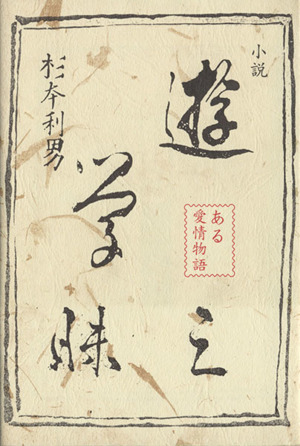 小説
遊学三昧
ある
愛情物語
杉本利男